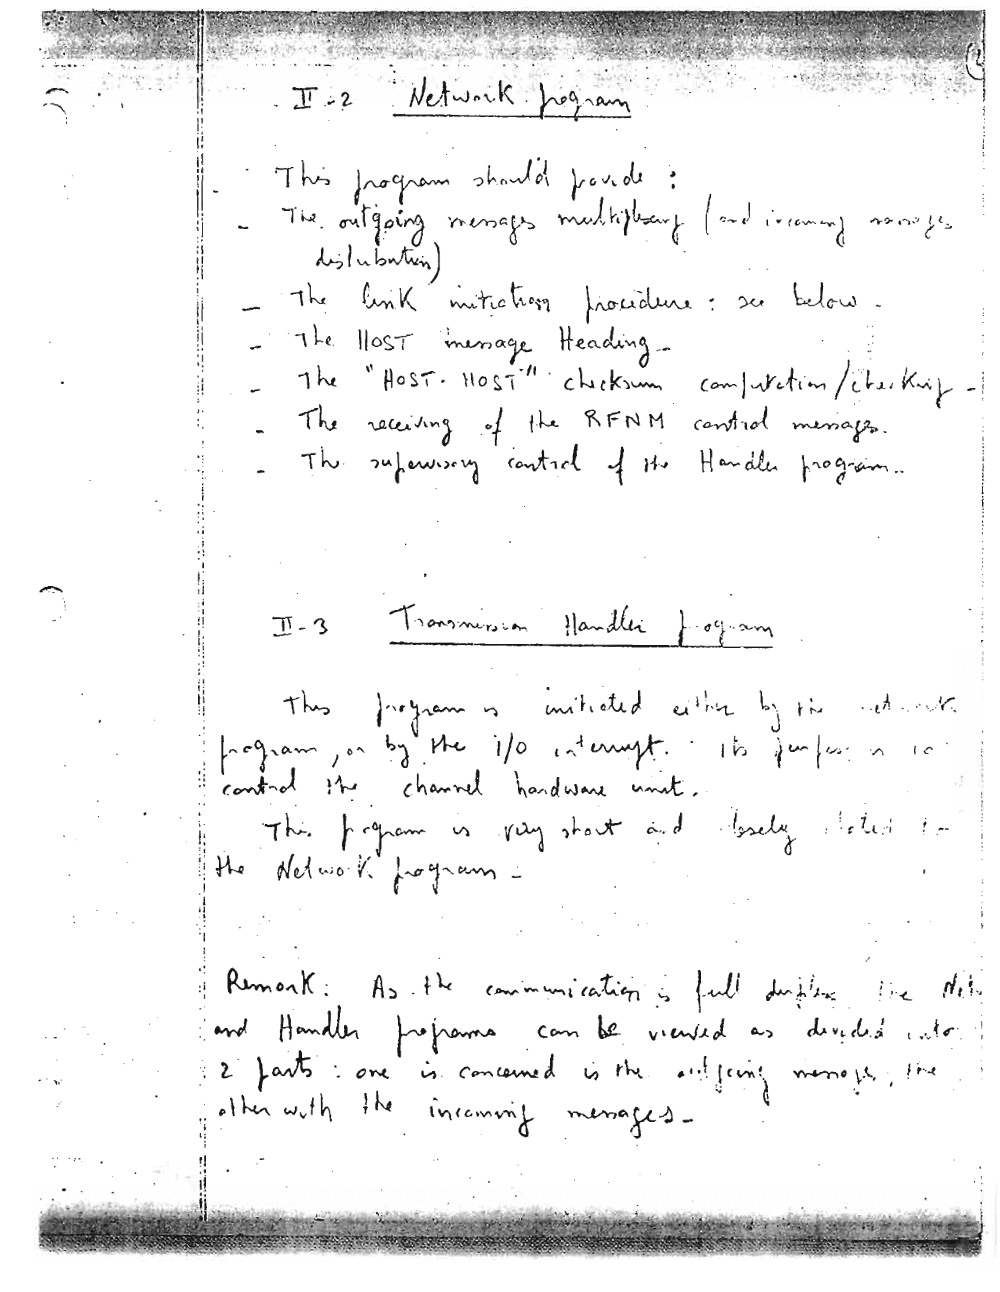 II-2 Network program
This program should provide :
- The outgoing messages multiplexing (and incoming messages
distribution)
- The link initiation procedure : see below -
- The HOST message Heading -
- The "HOST-HOST" checksum computation/checking -
- The receiving of the RFNM control messages.
- The supervisory control of the Handler program..
II-3 Transmission Handler program
This program is initiated either by the network
program, or by the i/o interrupt. Its purpose is to
control the channel hardware unit.
This program is very short and closely related to
the Network program -
Remark: As the communication is full duplex the Net.
and Handler programs can be viewed as divided into
2 parts : one is concerned is the outgoing messages, the
other with the incoming messages -